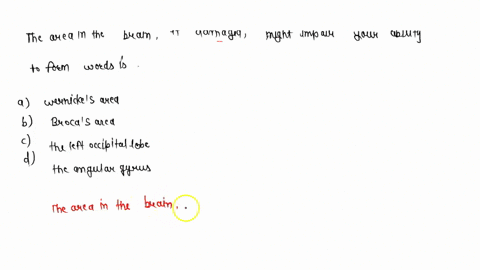 The area in the brain, if damaged, might impair your ability
to form words is .
a) wernicke's area
b) Broca's area
c) the left occipital lobe
d) the angular gyrus
The area in the brain, .